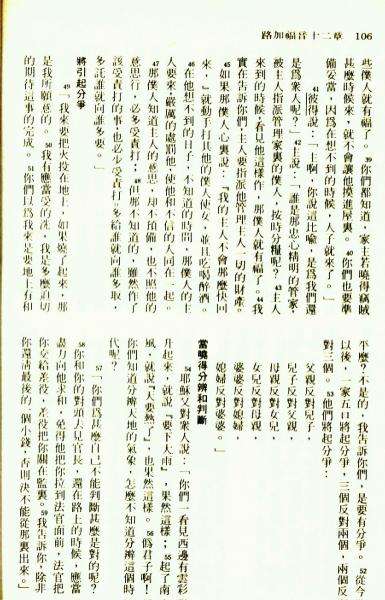 106　路加福音十二章
些僕人就有福了。39你們都知道，家主若曉得竊賊
甚麼時候來，就不會讓他摸進屋裏。40你們也要準
備妥當，因爲在想不到的時候，人子就來了。」
41彼得說：「主啊，你說這比喻，是爲我們還
是爲衆人呢？」42主說：「誰是那忠心精明的管家，
被主人指派管理家裏的僕人，按時分糧呢？43主人
來到的時候，看見他這樣作，那僕人就有福了。44我
實在告訴你們，主人要指派他管理主人一切的財產。
45如果那僕人心裏說：『我的主人不會那麼快回
來，』就動手打其他的僕人使女，並且吃喝醉酒。
46在他想不到的日子，不知道的時間，那僕人的主
人要來，嚴厲的處罰他，使他和不信的人同在一起。
47那僕人知道主人的意思，却不預備，也不照他的
意思行，必多受責打；48但那不知道的，雖然作了
該受責打的事，也必少受責打。多給誰就向誰多取，
多託誰就向誰多要。」
將引起分爭
49「我來要把火投在地上，如果燒了起來，那
是我所願意的。50我有應當受的洗，我是多麼迫切
的期待這事的完成。51你們以爲我來是要地上有和
平麼？不是的，我告訴你們，是要有分爭。52從今
以後，一家五口將起分爭，三個反對兩個，兩個反
對三個。53他們將起分爭：
父親反對兒子，
兒子反對父親，
母親反對女兒，
女兒反對母親，
婆婆反對媳婦，
媳婦反對婆婆。」
當曉得分辨和判斷
54耶穌又對衆人說：「你們一看見西邊有雲彩
升起來，就說『要下大雨』，果然這樣；55起了南
風，就說『天要熱了』，也果然這樣。56僞君子啊！
你們知道分辨天地的氣象，怎麼不知道分辨這個時
代呢？
57「你們爲甚麼自己不能判斷甚麼是對的呢？
58你和你的對頭去見官長，還在路上的時候，應當
盡力向他求和，免得他把你拉到法官面前，法官把
你交給差役，差役把你關在監裏。59我告訴你，除非
你還清最後的一個小錢，否則決不能從那裏出來。」